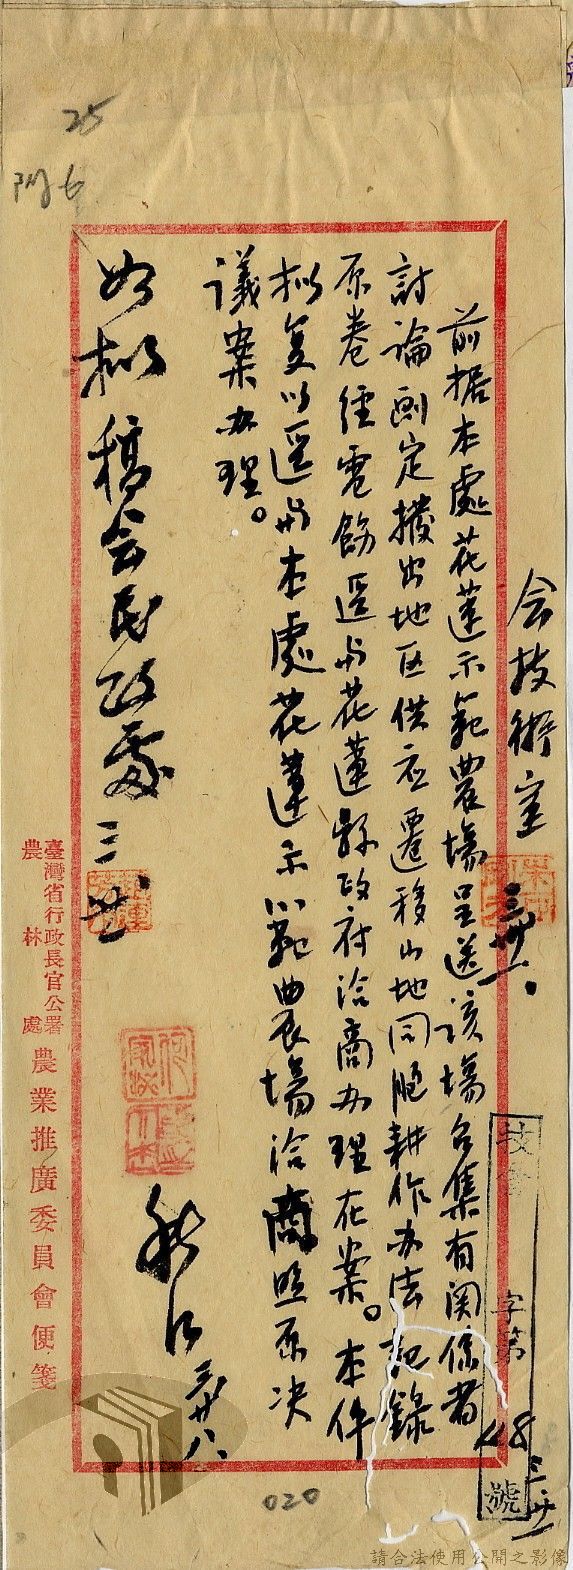 会技術室
三、卅一、
前据本處花蓮示範農場呈送該場召集有関係者
討論劃定撥出地区供应遷移山地同胞耕作办法記錄
原卷經電飭逕与花蓮縣政府洽商办理在案。本件
拟复以逕与本處花蓮示範農場洽商照原决
議案办理。
如拟 稿会民政處 三、卅
三、廿八
臺灣省行政長官公署
農林處
農業推廣委員會便箋
字第
號
三、卅一
25
020
請合法使用公開之影像